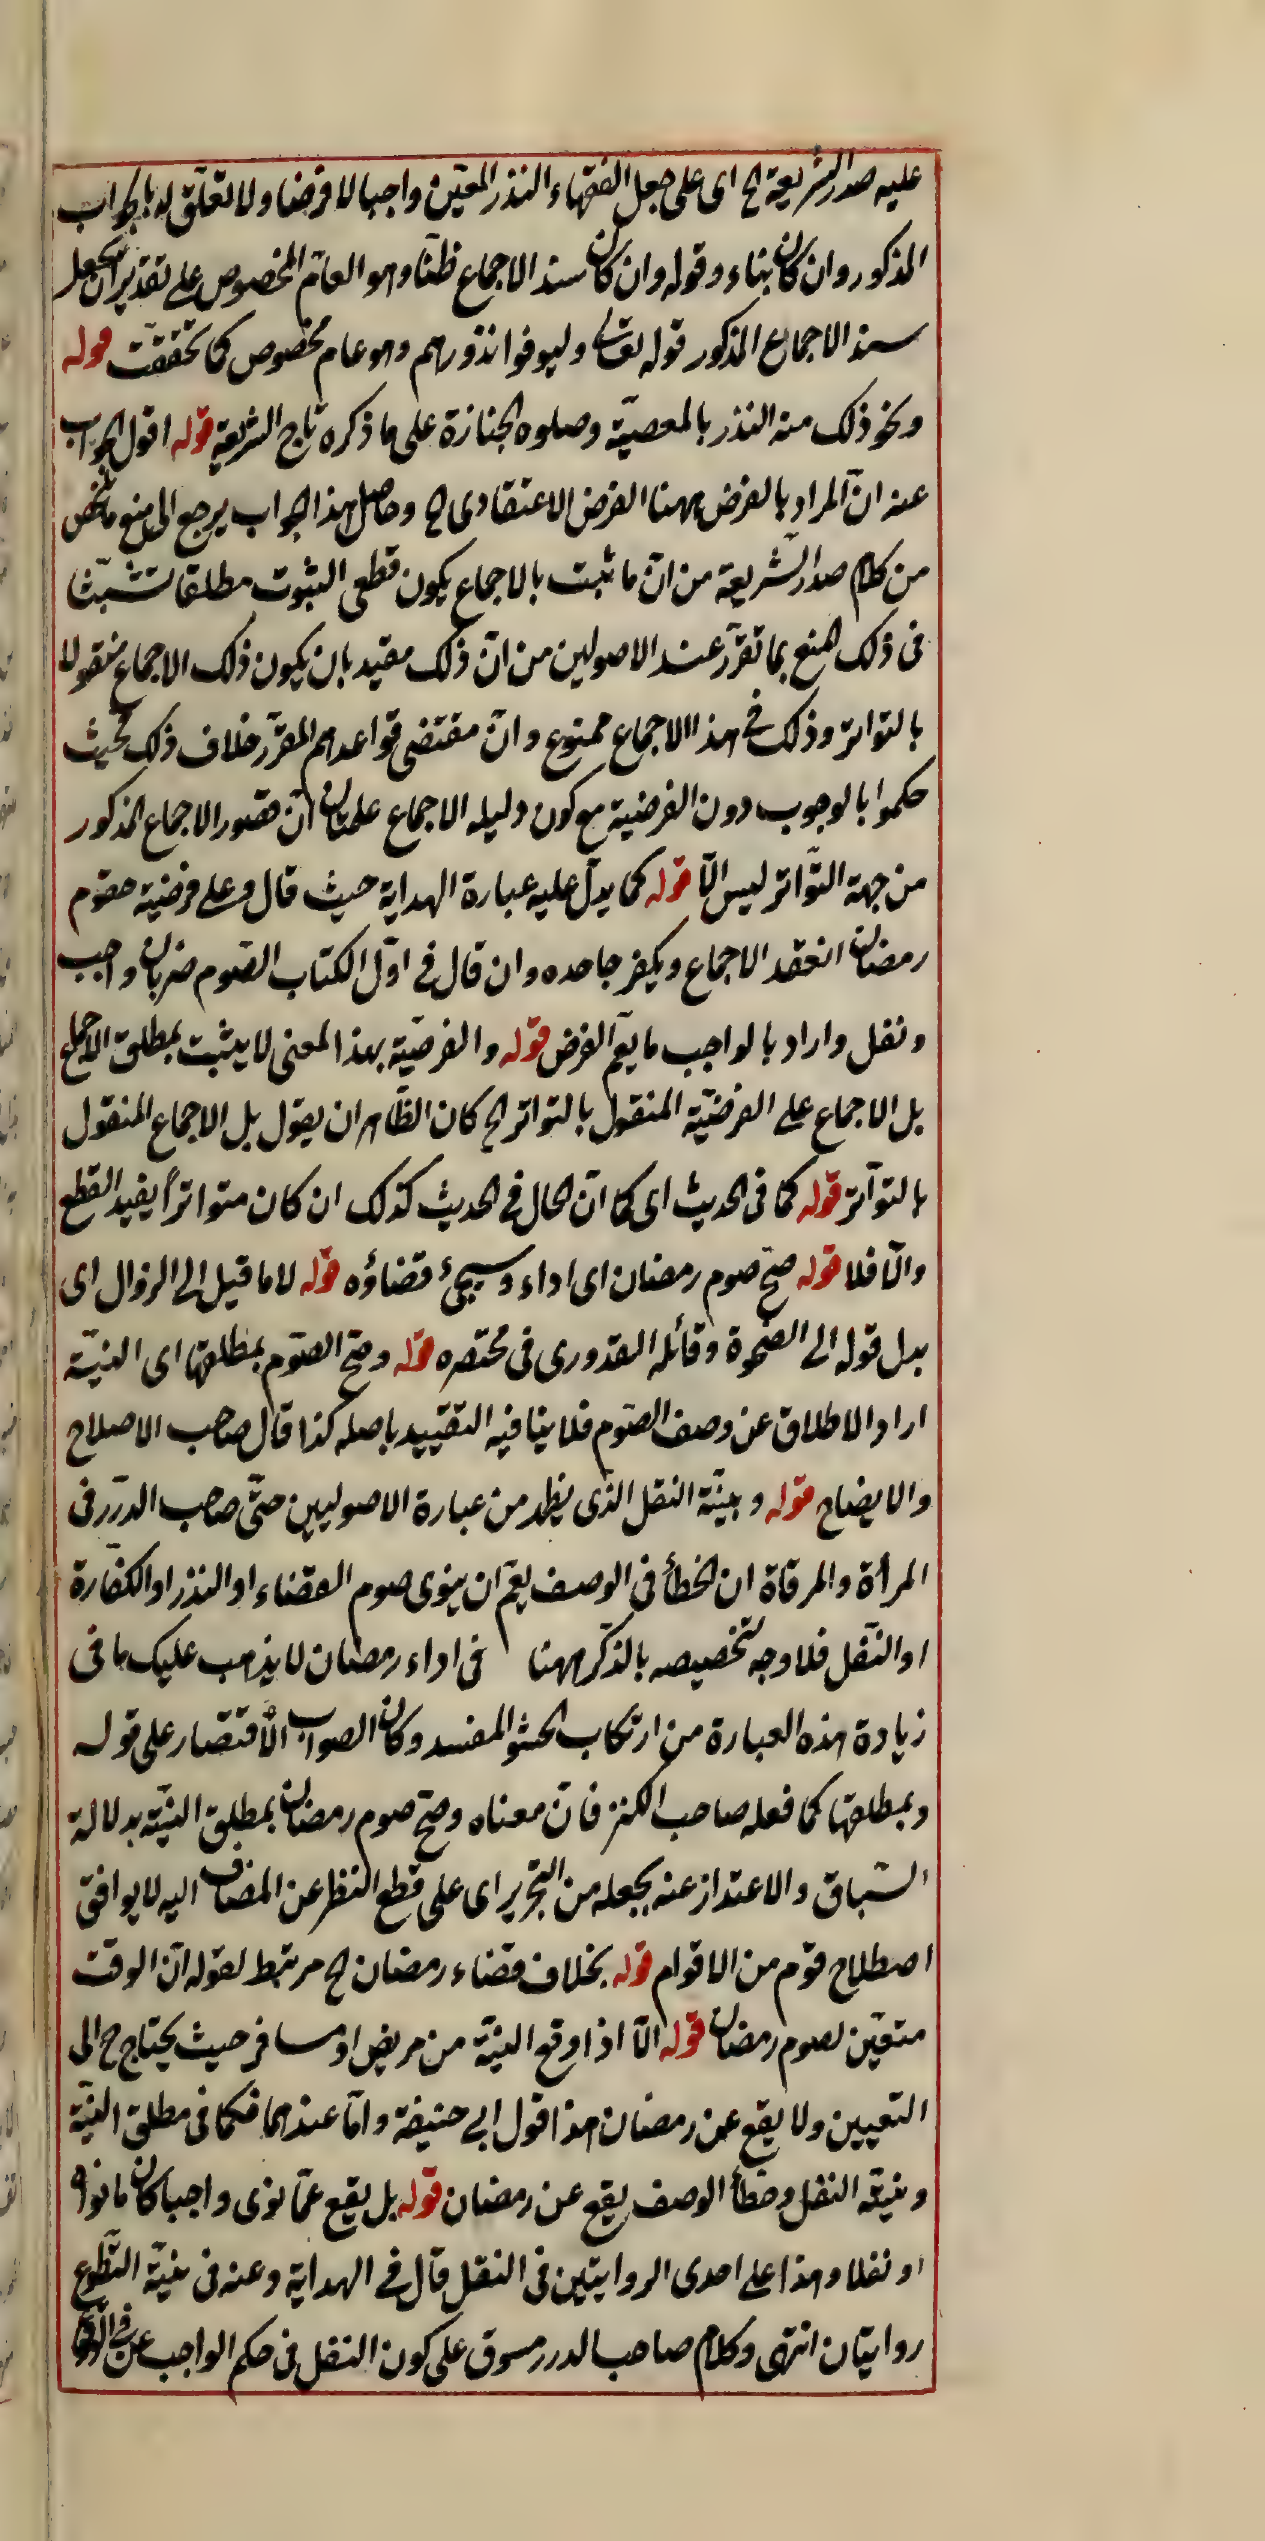 عليه صدر الشريعة الخ اى على جعل الفقهاء النذر المعيّن واجبا لا فرضا ولا تعلّق له بالجواب
المذكور وان كان بناء وقوله وان كان سند الاجماع ظنّا وهو العامّ المخصوص على تقدير ان يجعل
سند الاجماع المذكور قوله تعالى وليوفوا نذورهم وهو عام مخصوص كما تحققت قوله
ونحو ذلك منه النذر بالمعصيّة وصلوه الجنازة على ما ذكره تاج الشريعة قوله اقول الجواب
عنه انّ المراد بالفرض ههنا الفرض الاعتقادى الخ وحاصل هذا الجواب يرجع الى منع ما تلخص
من كلام صدر الشريعة من انّ ما ثبت بالاجماع يكون قطعى الثبوت مطلقا تشبّثا
فى ذلك المنع بما تقرّر عند الاصولين من انّ ذلك مقيد بان يكون ذلك الاجماع منقولا
بالتواتر وذلك فى هذا الاجماع ممنوع وانّ مقتضى قواعدهم المقرّر خلاف ذلك بحيث
حكموا بالوجوب دون الفرضية مع كون دليله الاجماع علمنا ان قصور الاجماع المذكور
من جهة التّواتر ليس الّا قوله كما يدلّ عليه عبارة الهداية حيث قال وعلى فرضيّة صوم
رمضان انعقد الاجماع ويكفر جاحده وان قال فى اوّل الكتاب الصّوم ضربان واجب
ونفل واراد بالواجب ما يعمّ الفرض قوله والفرضيّة بهذا المعنى لا يثبت بمطلق الاجماع
بل الاجماع على الفرضيّة المنقول بالتواتر الخ كان الظّاهر ان يقول بل الاجماع المنقول
بالتوآتر قوله كما فى الحديث اى كما انّ الحال فى الحديث كذلك ان كان متواتراً يفيد القطع
والّا فلا قوله صحّ صوم رمضان اى اداء وسيجئ قضاؤه قوله لا ما قيل الى الزوال اى
بدل قوله الى الضحوة وقائله القدورى فى مختصره قوله وصحّ الصّوم بمطلقها اى النيّة
اراد الاطلاق عن وصف الصّوم فلا ينافيه التقييد باصله كذا قال صاحب الاصلاح
والايضاح قوله وبنيّة النفل الذّى يظهر من عبارة الاصوليين حتّى صاحب الدرّر فى
المرأة والمرقاة ان الخطأ فى الوصف يعمّ ان ينوى صوم القضاء او النذر او الكفارة
او النّفل فلا وجه لتخصيصه بالذّكر ههنا فى اداء رمضان لا يذهب عليك ما فى
زيادة هذه العبارة من ارتكاب الحشو المفسد وكان الصواب الأقتصار على قوله
وبمطلقها كما فعله صاحب الكنز فانّ معناه وصحّ صوم رمضان بمطلق النيّة بدلالة
السّباق والاعتذار عنه بجعله من التجرير اى على قطع النظر عن المضاف اليه لا يوافق
اصطلاح قوم من الاقوام قوله بخلاف قضاء رمضان الخ مرتبط لقوله انّ الوقت
متعيّن لصوم رمضان قوله الّا اذا وقع النيّة من مريض او مسافر حيث يحتاج ح الى
التعيين ولا يقع عن رمضان هذا قول ابى حنيفة وامّا عندهما فكما فى مطلق النيّة
ونيّة النفل وخطأ الوصف يقع عن رمضان قوله بل يقع عمّا نوى واجبا كان ما نواه
او نفلا وهذا على احدى الروايتين فى النفل قال فى الهداية وعنه فى نيّة التطّوع
روايتان انتهى وكلام صاحب الدرر مسوق على كون النفل فى حكم الواجب عن فى